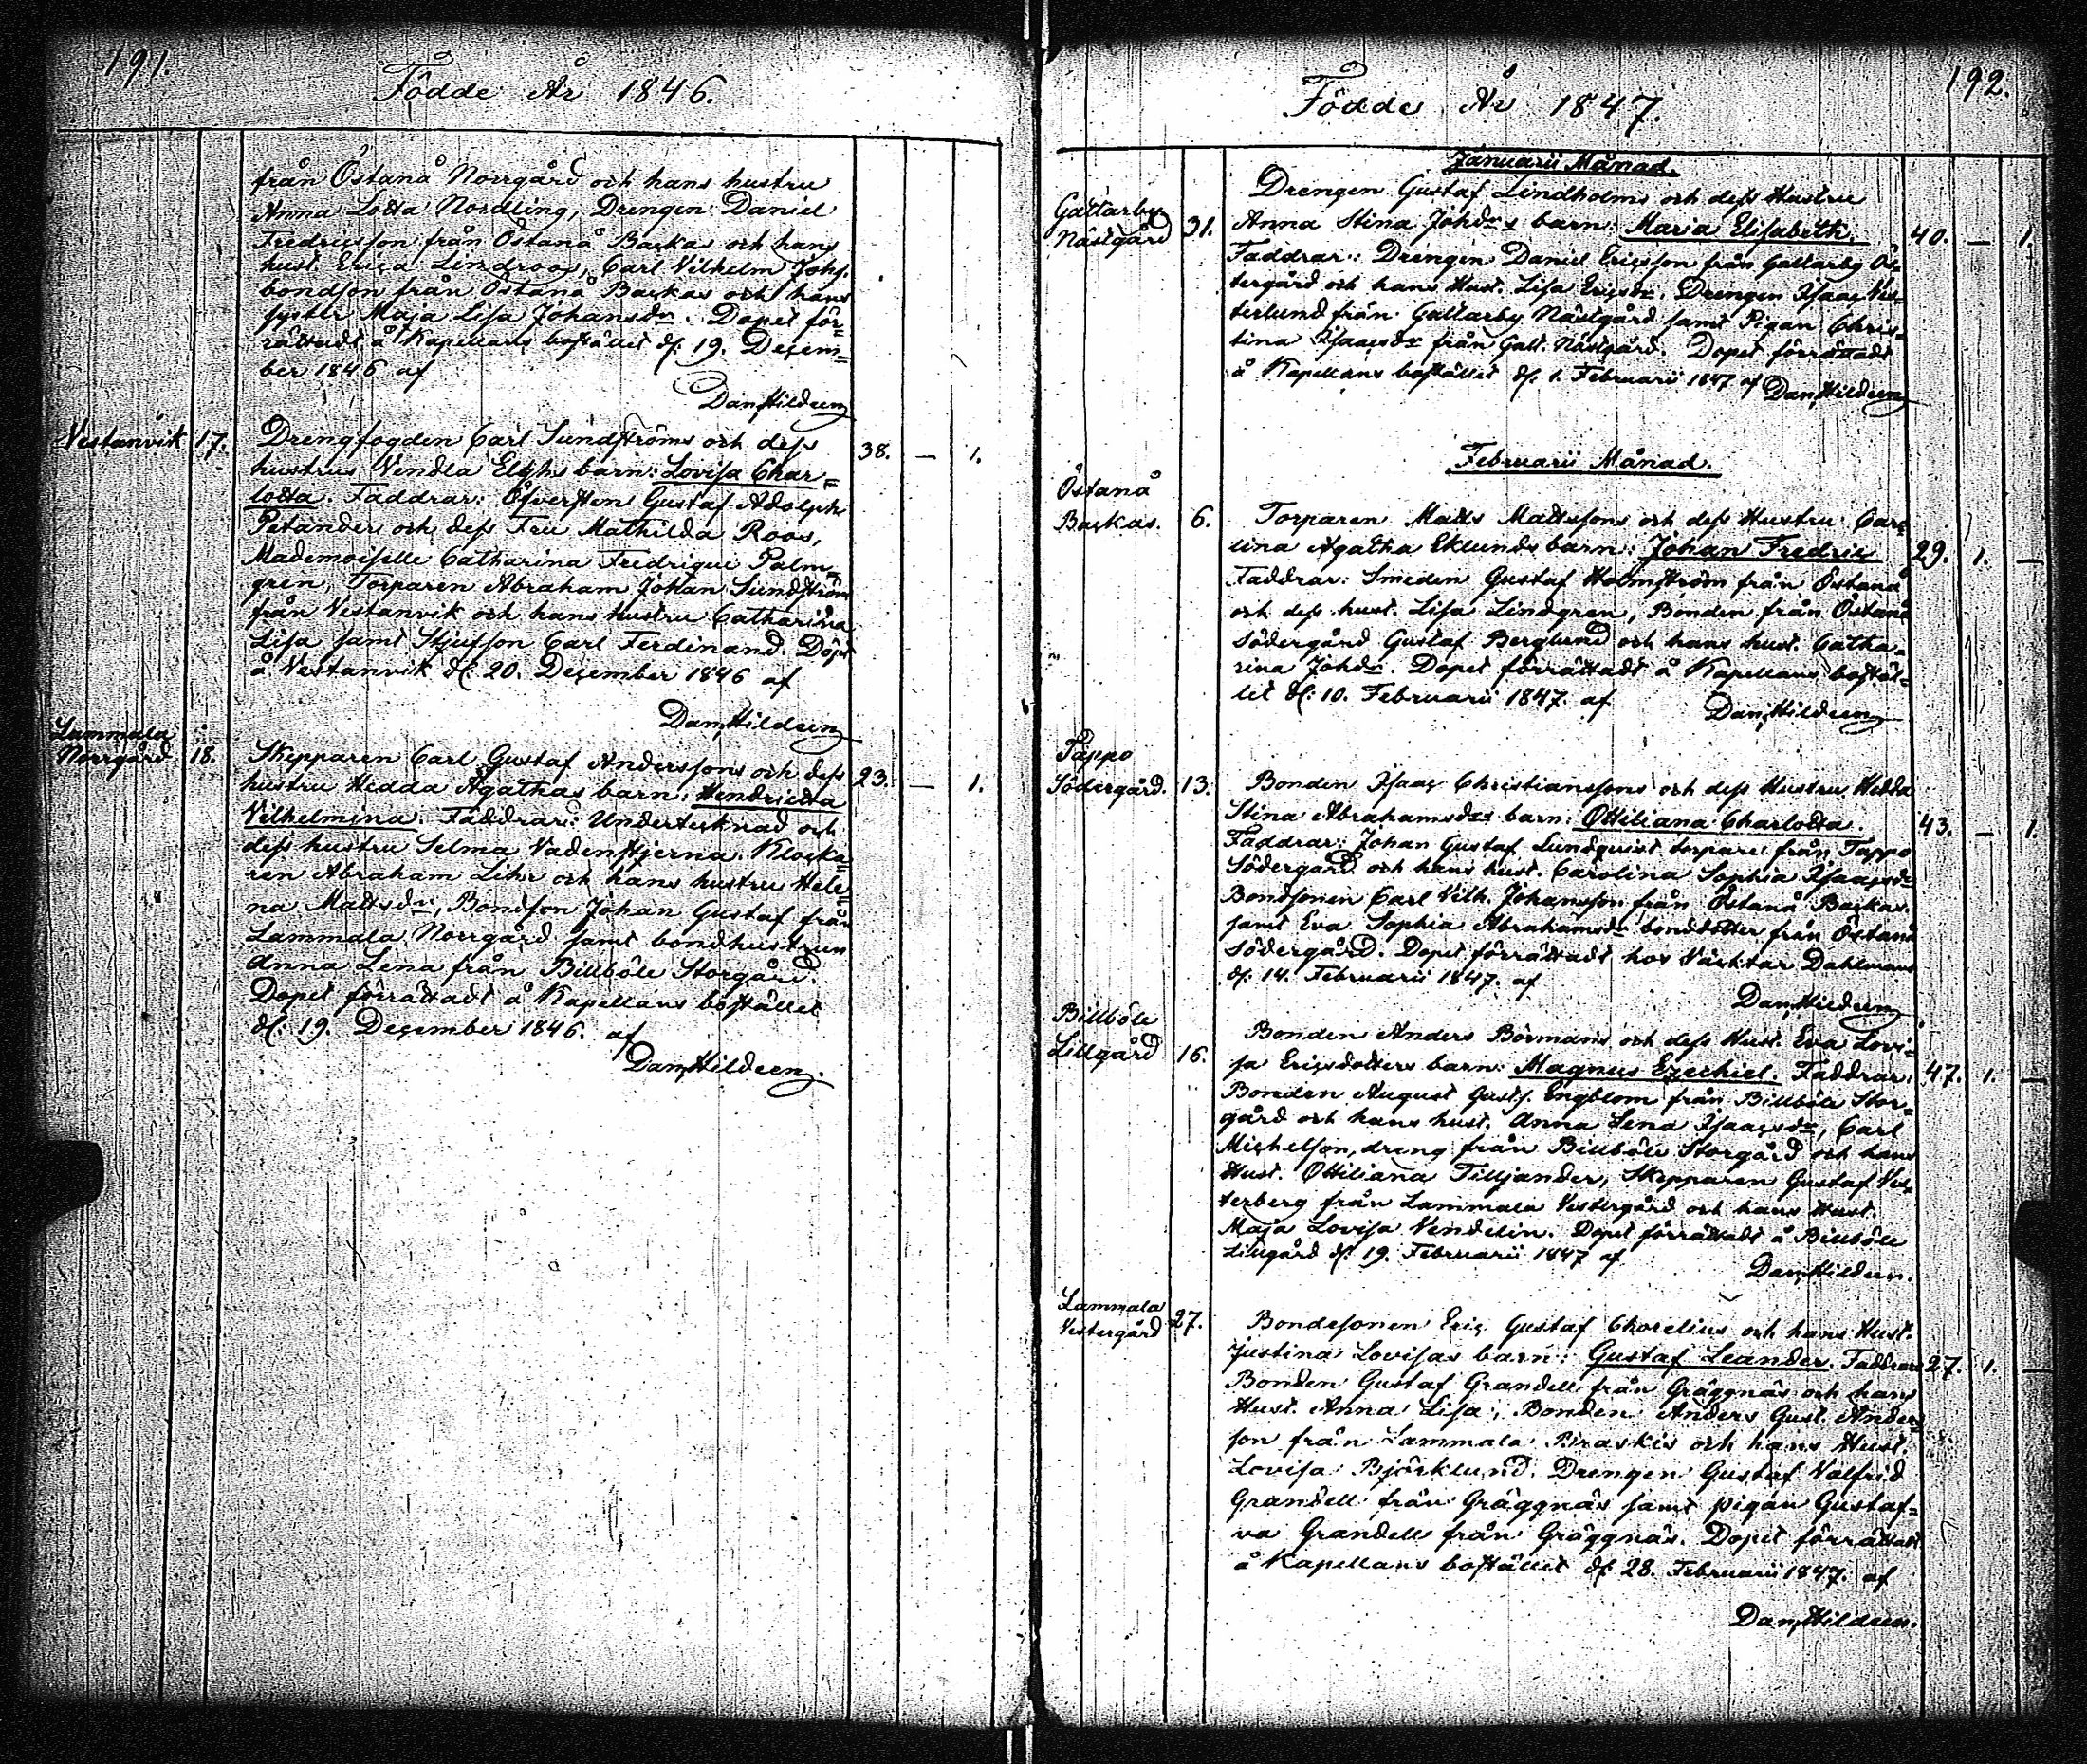 191.
Födde År 1846.
från Östanå Norrgård och hans hustru
Anna Lotta Nordling, Drengen Daniel
Fredricsson från Östanå Backas och hans
hust. Erica Lindroos, Carl Vilhelm Johs.
bondson från Östanå Backas och hans
syster Maja Lisa Johansdr. Dopet för=
rättadt å Kapellans bostället d: 19. Decem=
ber 1846 af
Dan. Hildeen
Vestanvik 17. Drengfogden Carl Sundströms och dess 38. — 1.
hustrus Vendla Elghs barn: Lovisa Char=
lotta. Faddrar: Öfversten Gustaf Adolph
Petanders och dess Fru Mathilda Roos,
Mademoiselle Catharina Fredrique Palm=
gren, Torparen Abraham Johan Sundström
från Vestanvik och hans hustru Catharina
Lisa samt Stjufson Carl Ferdinand. Döpt
å Vestanvik d: 20. December 1846 af
Dan. Hildeen
Lammala
Norrgård 18. Skepparen Carl Gustaf Anderssons och dess 23. — 1.
hustru Hedda Agathas barn: Hendrietta
Vilhelmina. Faddrar: Undertecknad och
dess hustru Selma Vadenstjerna. Klocka=
ren Abraham Lihr och hans hustru Hele=
na Mattsdr, Bondson Johan Gustaf från
Lammala Norrgård samt bondhustrun
Anna Lena från Billböle Storgård.
Dopet förrättadt å Kapellans bostället
d: 19. December 1846. af
Dan. Hildeen.
192.
Födde År 1847.
Januarii Månad.
Drengen Gustaf Lindholms och dess Hustru
Galtarby
Nästgård 31. Anna Stina Johdrs barn: Maria Elisabeth. 40. — 1.
Faddrar: Drengen Daniel Ericsson från Galtarby Ös=
tergård och hans Hust. Lisa Ericsdr. Drengen Isaac Ves=
terlund från Galtarby Nästgård samt Pigan Chris=
tina Isaacsdr från Galt. Nästgård. Dopet förrättadt
å Kapellans bostället d: 1. Februarii 1847 af Dan. Hildeen
Februarii Månad.
Östanå
Backas. 6. Torparen Matts Mattssons och dess Hustru Caro=
lina Agatha Eklunds barn: Johan Fredric 29. 1. —
Faddrar: Smeden Gustaf Holmström från Östanå
och dess hust. Lisa Lindgren, Bonden från Östanå
Södergård Gustaf Berglund och hans hust. Catha=
rina Johdr. Dopet förrättadt å Kapellans bostäl=
let d: 10. Februarii 1847. af
Dan. Hildeen
Tappo
Södergård. 13. Bonden Isaac Christianssons och dess Hustru Hedda
Stina Abrahamsdrs barn: Ottiliana Charlotta. 43. — 1.
Faddrar: Johan Gustaf Lundquist torpare från Tappo
Södergård och hans hust. Carolina Sophia Isaacsdr
Bondsonen Carl Vilh. Johansson från Östanå Backas.
samt Eva Sophia Abrahamsdr bonddotter från Östanå
Södergård. Dopet förrättadt hos Väcktar Dahlmans
d: 14. Februarii 1847. af
Dan. Hildeen
Billböle
Lillgård 16. Bonden Anders Börmans och dess Hust. Eva Lovi=
sa Ericsdotters barn: Magnus Ezechiel. Faddrar: 47. 1. —
Bonden August Gusts. Engblom från Billböle Stor=
gård och hans hust. Anna Lena Isaacsdr, Carl
Michelson, dreng från Billböle Storgård och hans
Hust. Ottiliana Tilljander, Skepparen Gustaf Ves=
terberg från Lammala Vestergård och hans Hust.
Maja Lovisa Vendelin. Dopet förrättadt å Billböle
Lillgård d: 19. Februarii 1847 af
Dan. Hildeen.
Lammala
Vestergård 27. Bondesonen Eric Gustaf Chorelius och hans Hust.
Justina Lovisas barn: Gustaf Leander. Faddrar 27. 1. —
Bonden Gustaf Grandell från Gräggnäs och hans
Hust. Anna Lisa, Bonden Anders Gust. Anders=
son från Lammala Braskis och hans Hust.
Lovisa Björklund. Drengen Gustaf Valfrid
Grandell från Gräggnäs samt pigan Gustaf=
va Grandell från Gräggnäs. Dopet förrättadt
å Kapellans bostället d: 28. Februarii 1847. af
Dan. Hildeen.